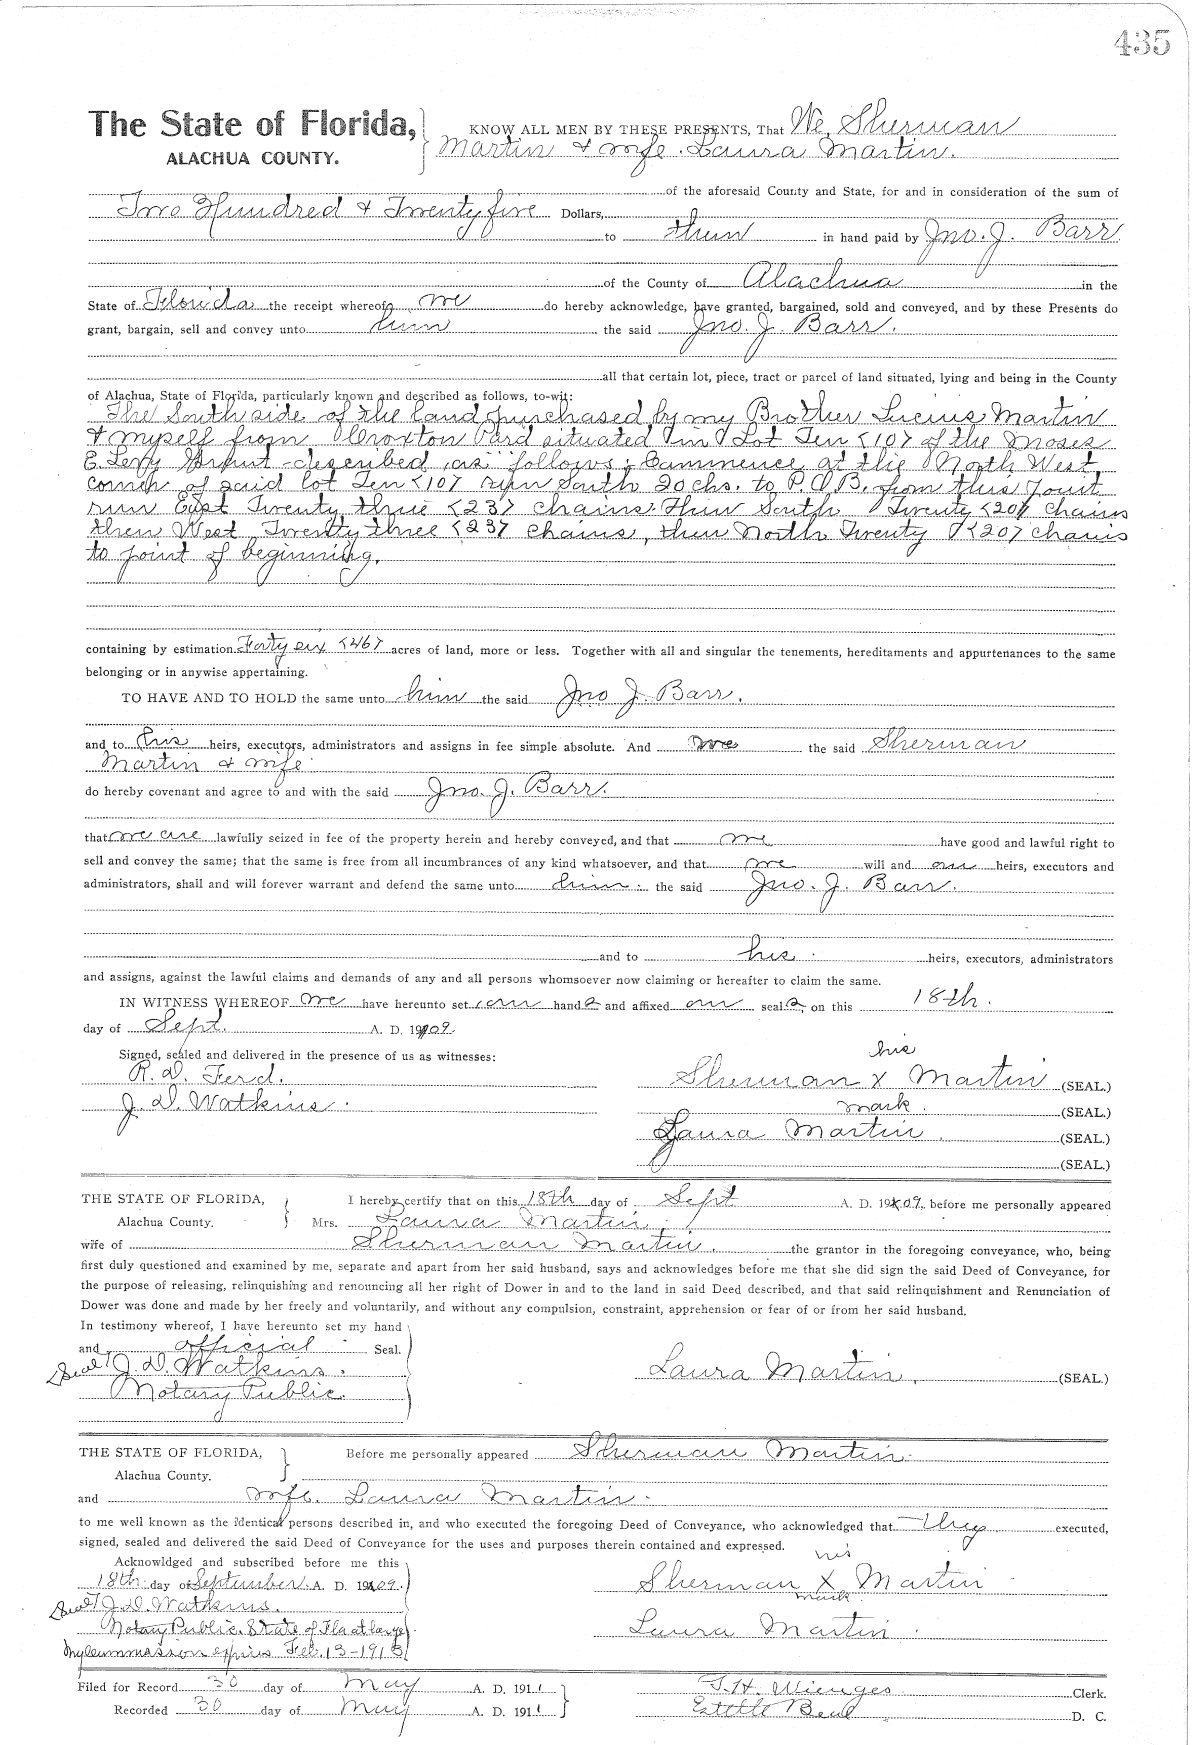 435
The State of Florida,
ALACHUA COUNTY.
KNOW ALL MEN BY THESE PRESENTS, That We, Sherman
Martin & wife Laura Martin.
of the aforesaid County and State, for and in consideration of the sum of
Two Hundred & Twenty five Dollars,
to them in hand paid by Jno. J. Barr
of the County of Alachua in the
State of Florida the receipt whereof we do hereby acknowledge, have granted, bargained, sold and conveyed, and by these Presents do
grant, bargain, sell and convey unto him the said Jno. J. Barr.
all that certain lot, piece, tract or parcel of land situated, lying and being in the County
of Alachua, State of Florida, particularly known and described as follows, to-wit:
The South side of the land purchased by my Brother Lucius Martin
& myself from Croxton Pard situated in Lot Ten <10> of the Moses
E. Levy Grant described as follows; Commence at the North West
corner of said lot Ten <10> run South 20 chs. to P.O.B. from this point
run East Twenty three <23> chains. Then South Twenty <20> chains
then West Twenty three <23> chains, then North Twenty <20> chains
to point of beginning.
containing by estimation Forty six <46> acres of land, more or less. Together with all and singular the tenements, hereditaments and appurtenances to the same
belonging or in anywise appertaining.
TO HAVE AND TO HOLD the same unto him the said Jno J. Barr.
and to his heirs, executors, administrators and assigns in fee simple absolute. And we the said Sherman
Martin & wife
do hereby covenant and agree to and with the said Jno. J. Barr.
that we are lawfully seized in fee of the property herein and hereby conveyed, and that we have good and lawful right to
sell and convey the same; that the same is free from all incumbrances of any kind whatsoever, and that we will and our heirs, executors and
administrators, shall and will forever warrant and defend the same unto him the said Jno. J. Barr.
and to his heirs, executors, administrators
and assigns, against the lawful claims and demands of any and all persons whomsoever now claiming or hereafter to claim the same.
IN WITNESS WHEREOF we have hereunto set our hands and affixed our seals on this 18th.
day of Sept. A. D. 1909.
Signed, sealed and delivered in the presence of us as witnesses:
R. D. Ferd.
J. D. Watkins.
his
Sherman X Martin (SEAL.)
mark (SEAL.)
Laura Martin. (SEAL.)
(SEAL.)
THE STATE OF FLORIDA,
Alachua County.
I hereby certify that on this 18th day of Sept A. D. 1909, before me personally appeared
Mrs. Laura Martin
wife of Sherman Martin. the grantor in the foregoing conveyance, who, being
first duly questioned and examined by me, separate and apart from her said husband, says and acknowledges before me that she did sign the said Deed of Conveyance, for
the purpose of releasing, relinquishing and renouncing all her right of Dower in and to the land in said Deed described, and that said relinquishment and Renunciation of
Dower was done and made by her freely and voluntarily, and without any compulsion, constraint, apprehension or fear of or from her said husband.
In testimony whereof, I have hereunto set my hand
and official Seal.
Seal J. D. Watkins.
Notary Public.
Laura Martin. (SEAL.)
THE STATE OF FLORIDA,
Alachua County.
Before me personally appeared Sherman Martin
and wife. Laura Martin.
to me well known as the identical persons described in, and who executed the foregoing Deed of Conveyance, who acknowledged that They executed,
signed, sealed and delivered the said Deed of Conveyance for the uses and purposes therein contained and expressed.
Acknowldged and subscribed before me this
18th day of September A. D. 1909.
Seal J. D. Watkins.
Notary Public. State of Fla at large
My commission expires Feb. 13-1913
his
Sherman X Martin
mark
Laura Martin
Filed for Record 30 day of May A. D. 1911
Recorded 30 day of May A. D. 1911
S. H. Wienges Clerk.
Estelle Beul D. C.